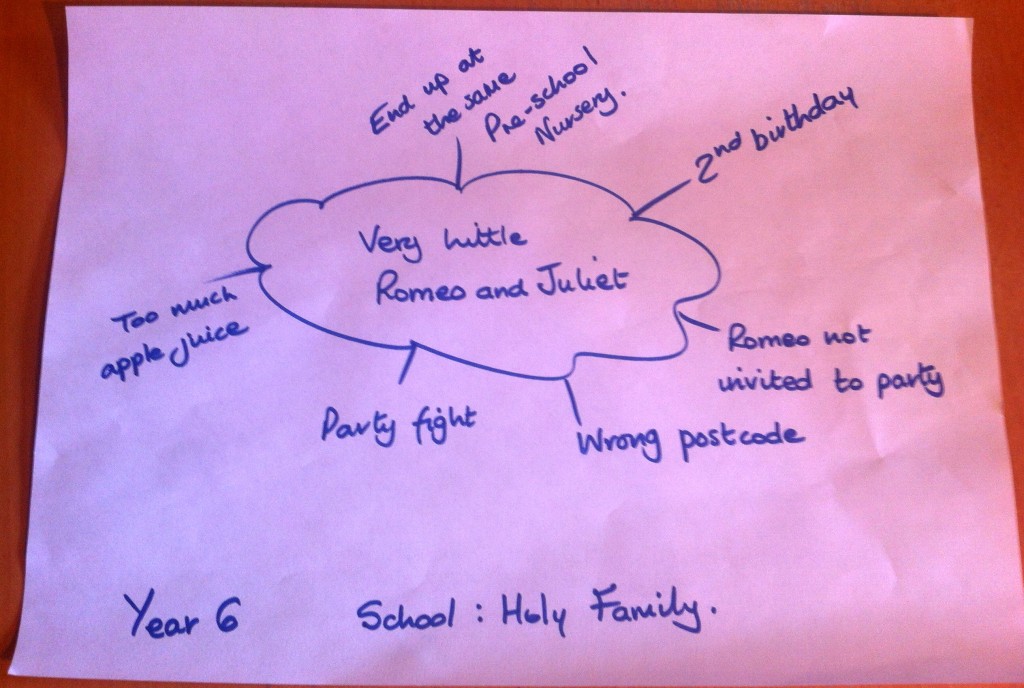 End up at
the same
Pre-school
Nursery.
2nd birthday
Very little
Romeo and Juliet
Too much
apple juice
Romeo not
invited to party
Party fight
Wrong postcode
Year 6
School : Holy Family.